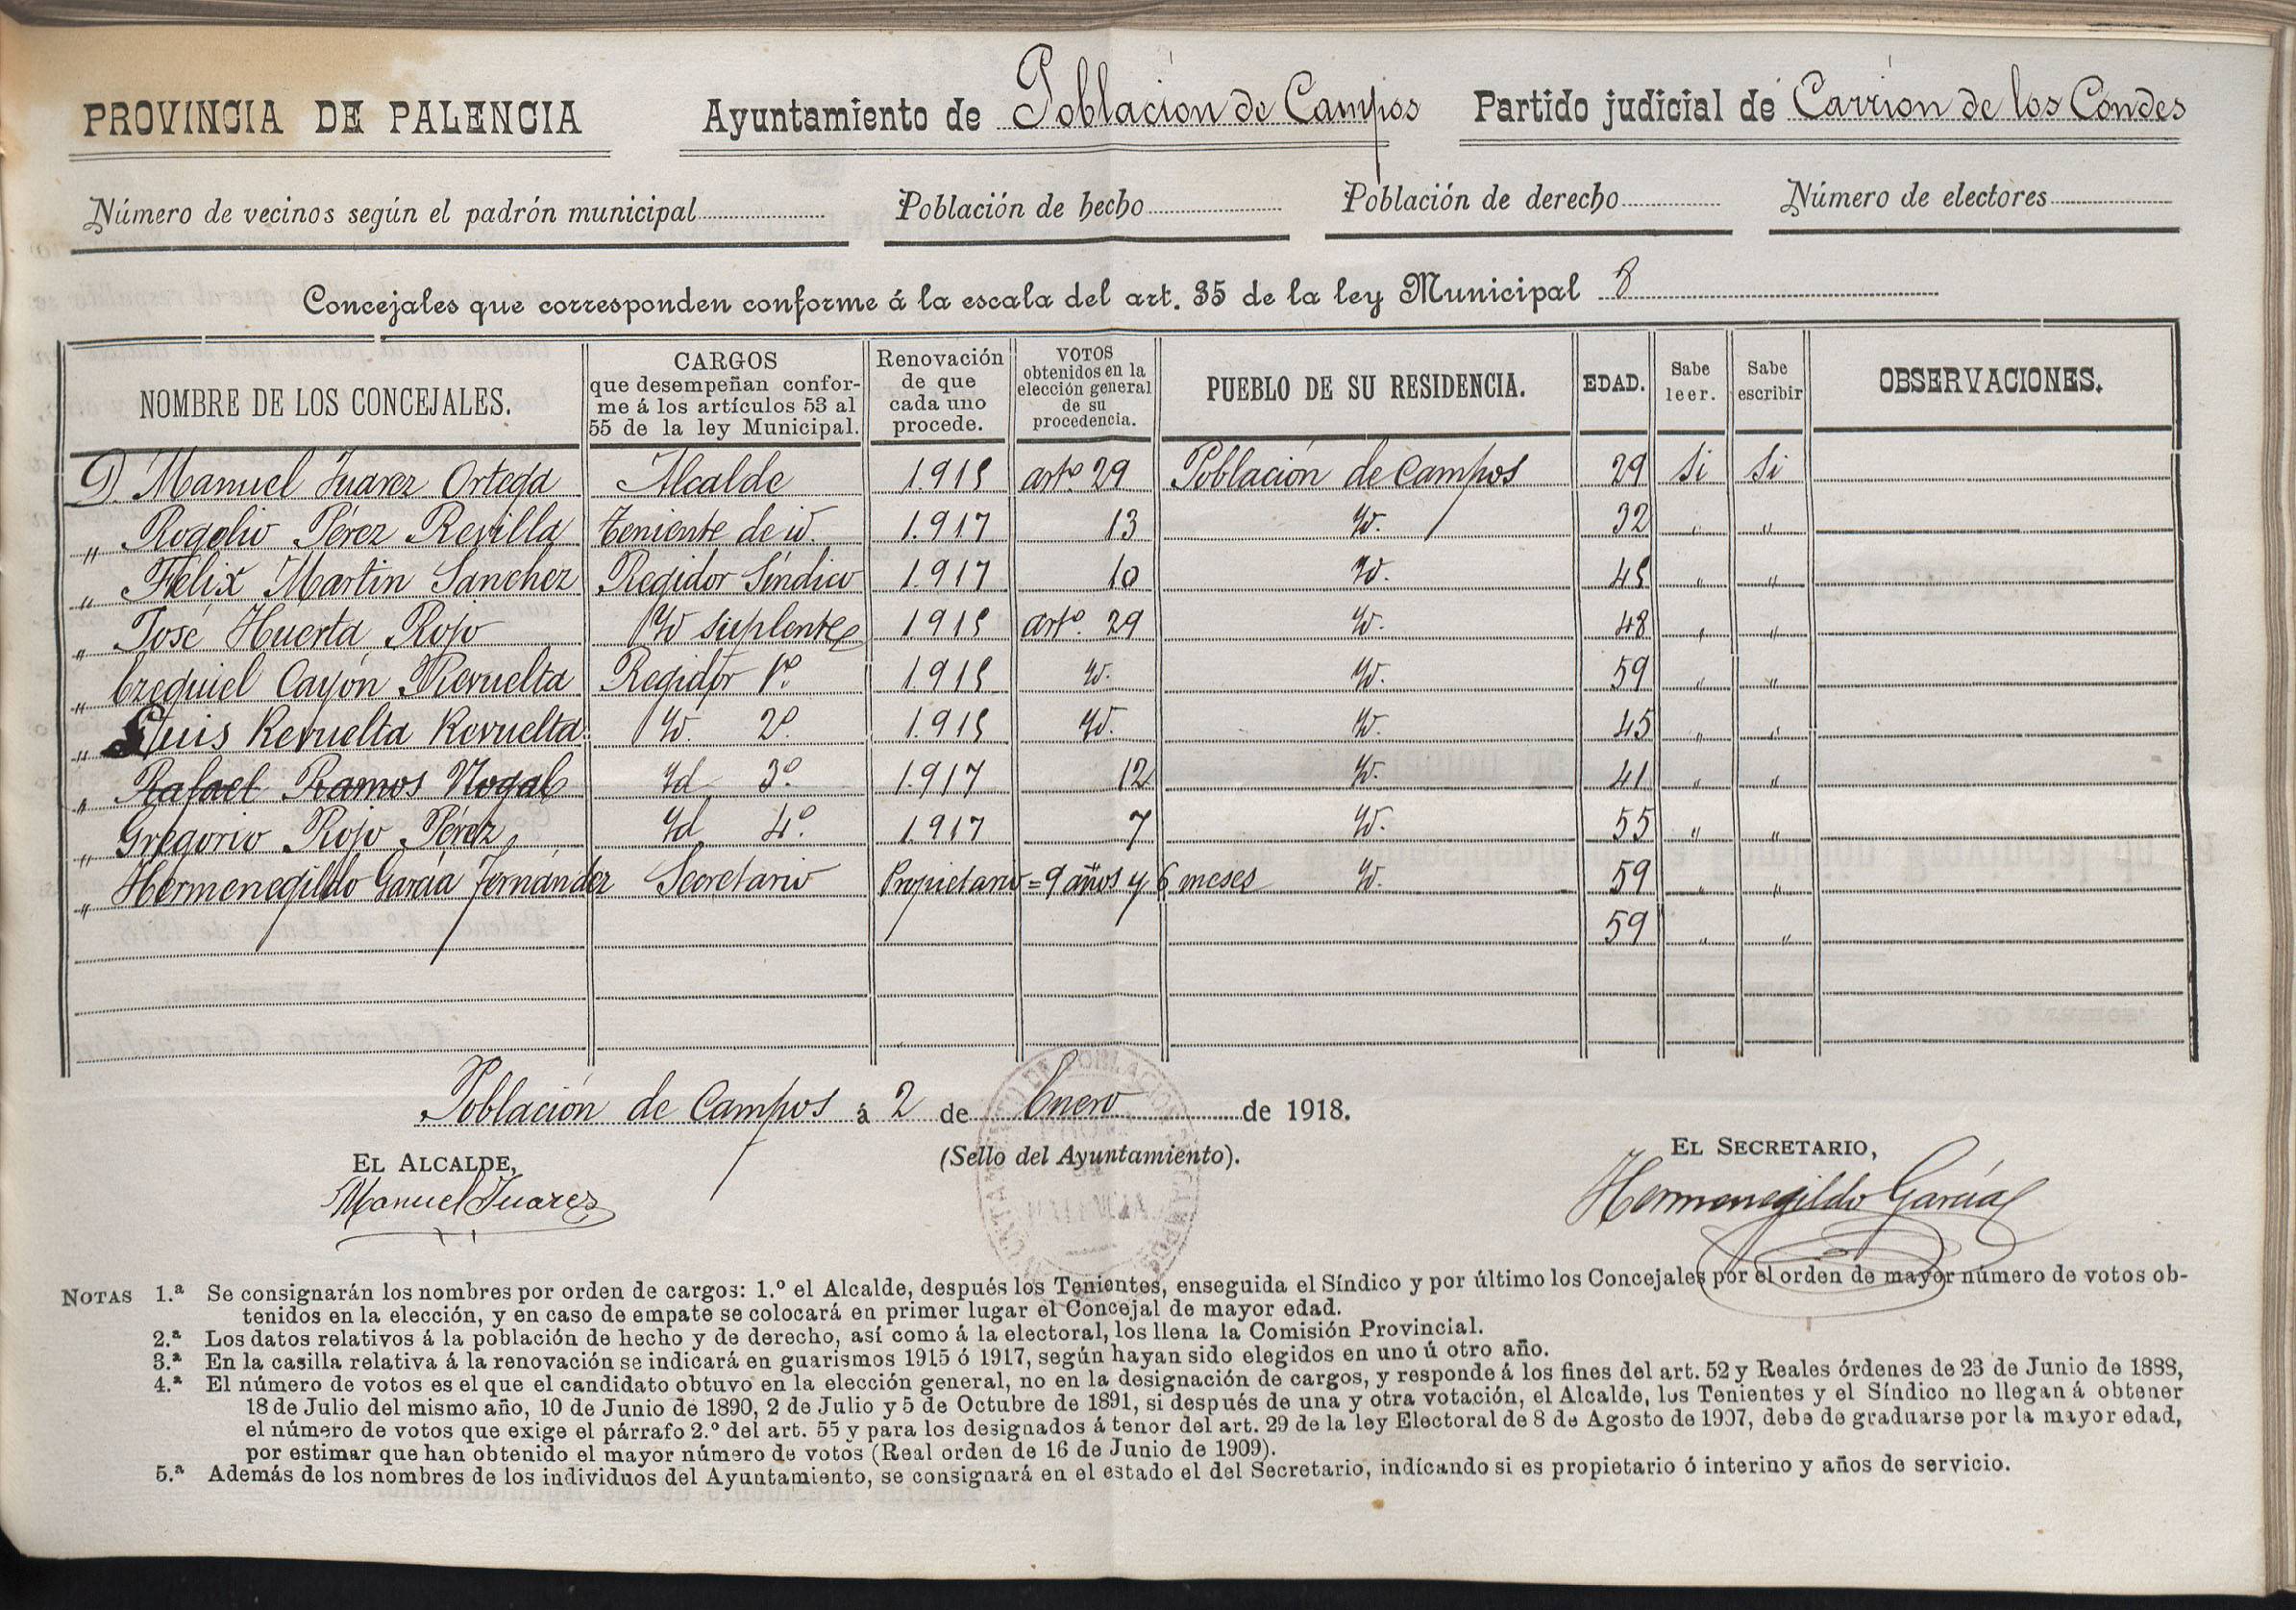 PROVINCIA DE PALENCIA Ayuntamiento de Población de Campos Partido judicial de Carrion de los Condes
Número de vecinos según el padrón municipal Población de hecho Población de derecho Número de electores
Concejales que corresponden conforme á la escala del art. 35 de la ley Municipal 8
NOMBRE DE LOS CONCEJALES. CARGOS que desempeñan conforme á los artículos 53 al 55 de la ley Municipal. Renovación de que cada uno procede. VOTOS obtenidos en la elección general de su procedencia. PUEBLO DE SU RESIDENCIA. EDAD. Sabe leer. Sabe escribir OBSERVACIONES.
D. Manuel Juarez Ortega Alcalde 1.915 artº 29 Población de Campos 29 Si Si
„ Rogelio Pérez Revilla Teniente de id. 1.917 13 Id. 32 „ „
„ Félix Martin Sanchez Regidor Síndico 1.917 10 Id. 45 „ „
„ José Huerta Rojo Id suplente 1915 artº. 29 Id. 48 „ „
„ Ezequiel Cayón Revuelta Regidor 1º. 1.915 id. Id. 59 „ „
„ Luis Revuelta Revuelta Id. 2º. 1.915 id. Id. 45 „ „
„ Rafael Ramos Nogal Id 3º. 1.917 12 Id. 41 „ „
„ Gregorio Rojo Pérez Id 4º. 1.917 7 Id. 55 „ „
„ Hermenegildo Garcia Fernández Secretario Propietario = 9 años y 6 meses Id. 59 „ „
59 „ „
Población de Campos á 2 de Enero de 1918.
EL ALCALDE, (Sello del Ayuntamiento). EL SECRETARIO,
Manuel Juarez Hermenegildo García
NOTAS 1.ª Se consignarán los nombres por orden de cargos: 1.º el Alcalde, después los Tenientes, enseguida el Síndico y por último los Concejales por el orden de mayor número de votos ob-
tenidos en la elección, y en caso de empate se colocará en primer lugar el Concejal de mayor edad.
2.ª Los datos relativos á la población de hecho y de derecho, así como á la electoral, los llena la Comisión Provincial.
3.ª En la casilla relativa á la renovación se indicará en guarismos 1915 ó 1917, según hayan sido elegidos en uno ú otro año.
4.ª El número de votos es el que el candidato obtuvo en la elección general, no en la designación de cargos, y responde á los fines del art. 52 y Reales órdenes de 23 de Junio de 1888,
18 de Julio del mismo año, 10 de Junio de 1890, 2 de Julio y 5 de Octubre de 1891, si después de una y otra votación, el Alcalde, los Tenientes y el Síndico no llegan á obtener
el número de votos que exige el párrafo 2.º del art. 55 y para los designados á tenor del art. 29 de la ley Electoral de 8 de Agosto de 1907, debe de graduarse por la mayor edad,
por estimar que han obtenido el mayor número de votos (Real orden de 16 de Junio de 1909).
5.ª Además de los nombres de los individuos del Ayuntamiento, se consignará en el estado el del Secretario, indicando si es propietario ó interino y años de servicio.